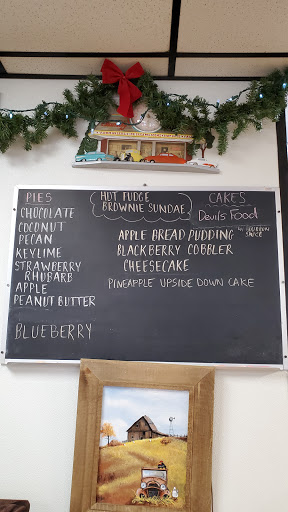 PIES
CHOCOLATE
COCONUT
PECAN
KEYLIME
STRAWBERRY
RHUBARB
APPLE
PEANUT BUTTER
BLUEBERRY
HOT FUDGE
BROWNIE SUNDAE
CAKES
Devil's Food
APPLE BREAD PUDDING w/ BOURBON SAUCE
BLACKBERRY COBBLER
CHEESECAKE
PINEAPPLE UPSIDE DOWN CAKE